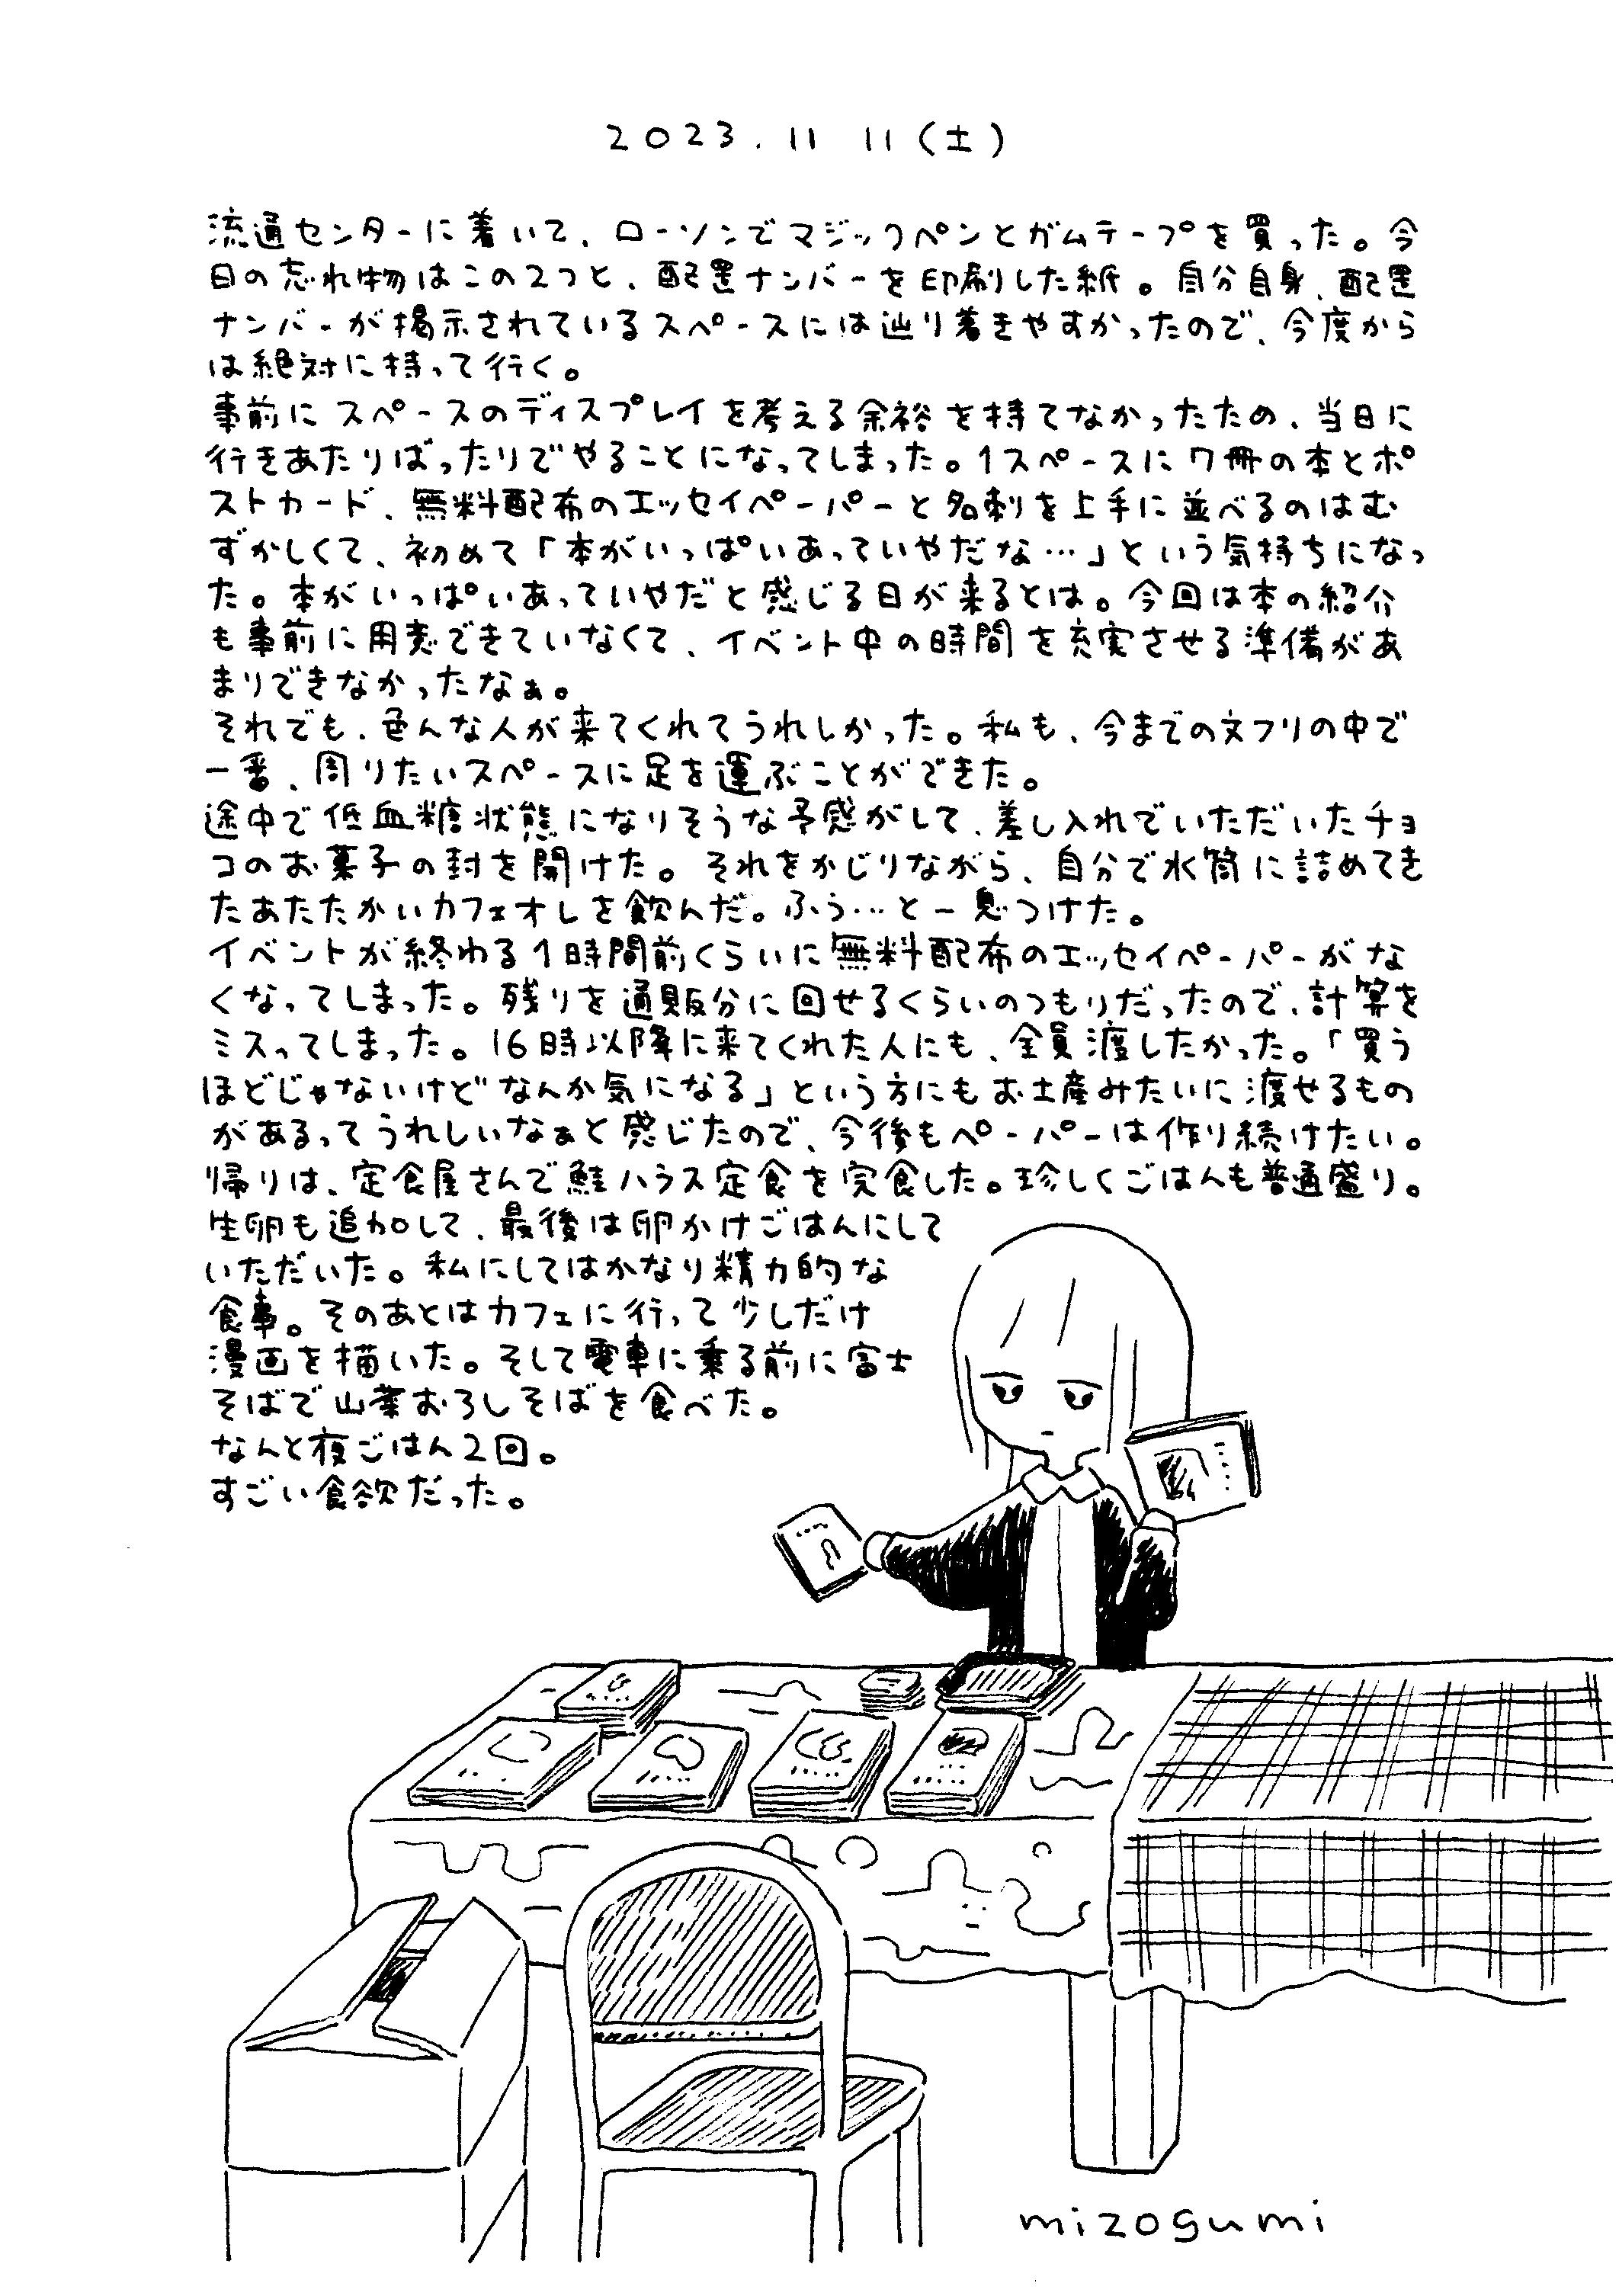 2023.11 11(土)
流通センターに着いて、ローソンでマジックペンとガムテープを買った。今
日の忘れ物はこの2つと、配置ナンバーを印刷した紙。自分自身、配置
ナンバーが掲示されているスペースには辿り着きやすかったので、今度から
は絶対に持って行く。
事前にスペースのディスプレイを考える余裕を持てなかったため、当日に
行きあたりばったりでやることになってしまった。1スペースに7冊の本とポ
ストカード、無料配布のエッセイペーパーと名刺を上手に並べるのはむ
ずかしくて、初めて「本がいっぱいあっていやだな…」という気持ちになっ
た。本がいっぱいあっていやだと感じる日が来るとは。今回は本の紹介
も事前に用意できていなくて、イベント中の時間を充実させる準備があ
まりできなかったなぁ。
それでも、色んな人が来てくれてうれしかった。私も、今までの文フリの中で
一番、周りたいスペースに足を運ぶことができた。
途中で低血糖状態になりそうな予感がして、差し入れでいただいたチョ
コのお菓子の封を開けた。それをかじりながら、自分で水筒に詰めてき
たあたたかいカフェオレを飲んだ。ふぅ…と一息つけた。
イベントが終わる1時間前くらいに無料配布のエッセイペーパーがな
くなってしまった。残りを通販分に回せるくらいのつもりだったので、計算を
ミスってしまった。16時以降に来てくれた人にも、全員渡したかった。「買う
ほどじゃないけどなんか気になる」という方にもお土産みたいに渡せるもの
があるってうれしいなぁと感じたので、今後もペーパーは作り続けたい。
帰りは、定食屋さんで鮭ハラス定食を完食した。珍しくごはんも普通盛り。
生卵も追加して、最後は卵かけごはんにして
いただいた。私にしてはかなり精力的な
食事。そのあとはカフェに行って少しだけ
漫画を描いた。そして電車に乗る前に富士
そばで山菜おろしそばを食べた。
なんと夜ごはん2回。
すごい食欲だった。
mizogumi